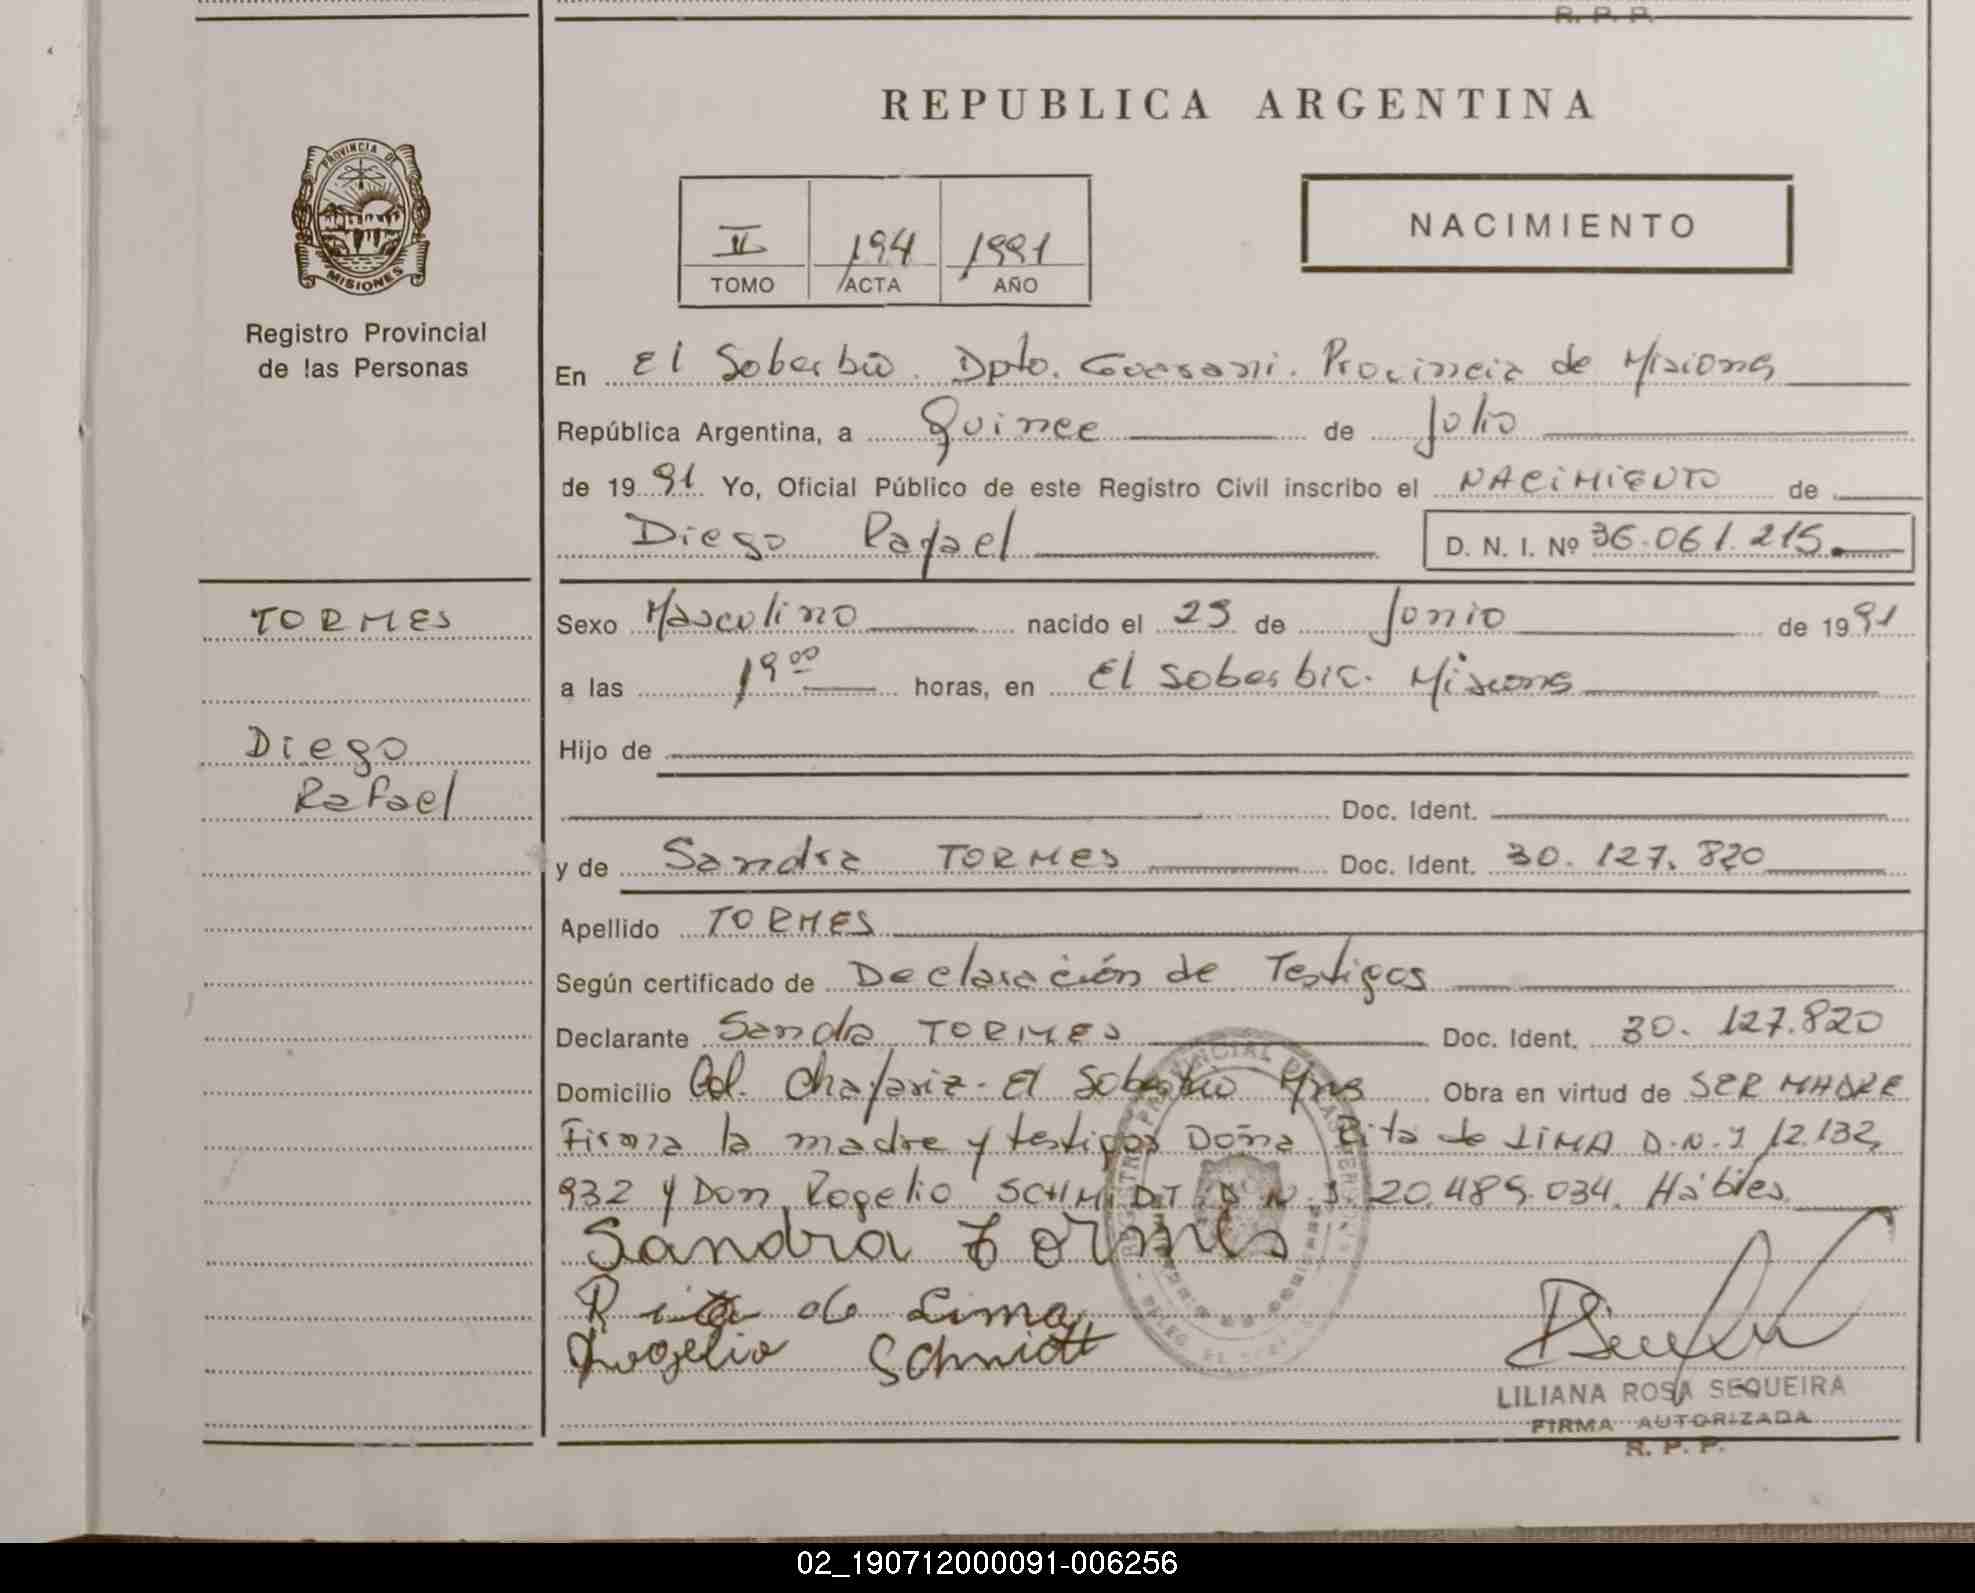 R. P. P.
REPUBLICA ARGENTINA
PROVINCIA DE
MISIONES
Registro Provincial
de las Personas
II 194 1991
TOMO ACTA AÑO
NACIMIENTO
En El Soberbio. Dpto. Guarani. Provincia de Misiones
República Argentina, a Quince de Julio
de 1991 Yo, Oficial Público de este Registro Civil inscribo el NACIMIENTO de
Diego Rafael D. N. I. Nº 36.061.215
TORMES
Diego
Rafael
Sexo Masculino nacido el 23 de Junio de 1991
a las 19 00 horas, en El Soberbio. Misiones
Hijo de
Doc. Ident.
y de Sandra TORMES Doc. Ident. 30.127.820
Apellido TORMES
Según certificado de Declaración de Testigos
Declarante Sandra TORMES Doc. Ident. 30.127.820
Domicilio Col. Chafariz - El Soberbio Mns Obra en virtud de SER MADRE
Firma la madre y testigos Doña Rita de LIMA D.N.I 12.132,
932 y Don Rogelio SCHMIDT D.N.I. 20.485.034. Hábiles.
Sandra Tormes
Rita de Lima
Rogelio Schmidt
LILIANA ROSA SEQUEIRA
FIRMA AUTORIZADA
R. P. P.
02_190712000091-006256